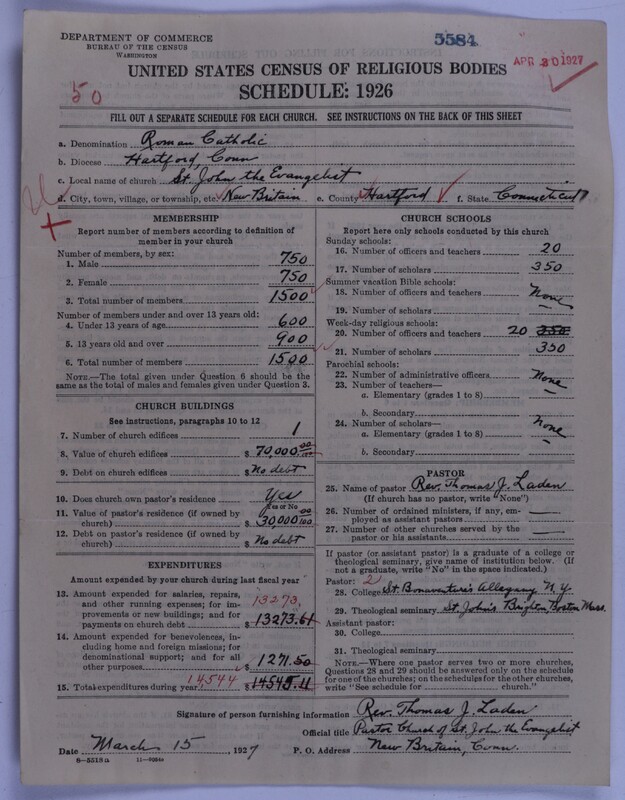 DEPARTMENT OF COMMERCE
BUREAU OF THE CENSUS
WASHINGTON
5584
APR 30 1927
50
UNITED STATES CENSUS OF RELIGIOUS BODIES
SCHEDULE: 1926
FILL OUT A SEPARATE SCHEDULE FOR EACH CHURCH. SEE INSTRUCTIONS ON THE BACK OF THIS SHEET
a. Denomination Roman Catholic
b. Diocese Hartford, Conn
c. Local name of church St. John the Evangelist
d. City, town, village, or township, etc. New Britain e. County Hartford f. State Connecticut
MEMBERSHIP
Report number of members according to definition of
member in your church
Number of members, by sex:
1. Male 750
2. Female 750
3. Total number of members 1500
Number of members under and over 13 years old:
4. Under 13 years of age 600
5. 13 years old and over 900
6. Total number of members 1500
NOTE.—The total given under Question 6 should be the
same as the total of males and females given under Question 3.
CHURCH BUILDINGS
See instructions, paragraphs 10 to 12
7. Number of church edifices 1
8. Value of church edifices $ 70,000 00/100
9. Debt on church edifices $ No debt
10. Does church own pastor's residence Yes
Yes or No
11. Value of pastor's residence (if owned by
church) $ 30,000 00/100
12. Debt on pastor's residence (if owned by
church) $ No debt
EXPENDITURES
Amount expended by your church during last fiscal year
13. Amount expended for salaries, repairs,
and other running expenses; for im-
provements or new buildings; and for
payments on church debt $ 13273.61
13273
14. Amount expended for benevolences, in-
cluding home and foreign missions; for
denominational support; and for all
other purposes $ 1271.50
14544
15. Total expenditures during year $ 14545.11
CHURCH SCHOOLS
Report here only schools conducted by this church
Sunday schools:
16. Number of officers and teachers 20
17. Number of scholars 350
Summer vacation Bible schools:
18. Number of officers and teachers None
19. Number of scholars —
Week-day religious schools:
20. Number of officers and teachers 20 350
21. Number of scholars 350
Parochial schools:
22. Number of administrative officers None
23. Number of teachers—
a. Elementary (grades 1 to 8) —
b. Secondary
24. Number of scholars— None
a. Elementary (grades 1 to 8) —
b. Secondary
PASTOR
25. Name of pastor Rev. Thomas J. Laden
(If church has no pastor, write "None")
26. Number of ordained ministers, if any, em-
ployed as assistant pastors —
27. Number of other churches served by the
pastor or his assistants —
If pastor (or assistant pastor) is a graduate of a college or
theological seminary, give name of institution below. (If
not a graduate, write "No" in the space indicated.)
Pastor: 2
28. College St. Bonaventure's Allegany N.Y.
29. Theological seminary St. John's Brighton, Boston Mass.
Assistant pastor:
30. College
31. Theological seminary
NOTE.—Where one pastor serves two or more churches,
Questions 28 and 29 should be answered only on the schedule
for one of the churches; on the schedules for the other churches,
write "See schedule for church."
Signature of person furnishing information Rev. Thomas J. Laden
Official title Pastor Church of St. John the Evangelist
Date March 15, 1927 P. O. Address New Britain, Conn.